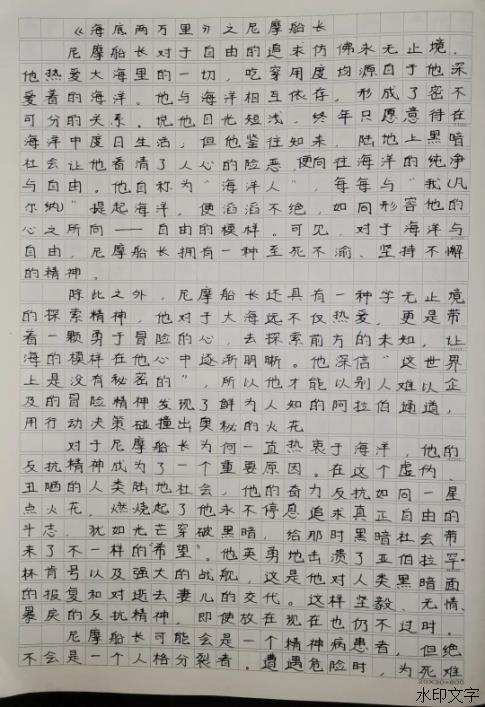 《海底两万里》之尼摩船长
尼摩船长对于自由的追求仿佛永无止境，
他热爱大海里的一切，吃穿用度均源自于他深
爱着的海洋。他与海洋相互依存，形成了密不
可分的关系。说他目光短浅，终年只愿意待在
海洋中度日生活，但他鉴往知来，陆地上黑暗
社会让他看清了人心的险恶，便向往海洋的纯净
与自由。他自称为“海洋人”，每每与“我(凡
尔纳)”提起海洋，便滔滔不绝，如同形容他的
心之所向——自由的模样。可见，对于海洋与
自由，尼摩船长拥有一种至死不渝、坚持不懈
的精神。
除此之外，尼摩船长还具有一种学无止境
的探索精神，他对于大海远不仅热爱，更是带
着一颗勇于冒险的心，去探索前方的未知，让
海的模样在他心中逐渐明晰。他深信“这世界
上是没有秘密的”，所以他才能以别人难以企
及的冒险精神发现了鲜为人知的阿拉伯通道，
用行动决策碰撞出奥秘的火花
对于尼摩船长为何一直热衷于海洋，他的
反抗精神成为了一个重要原因。在这个虚伪、
丑陋的人类陆地社会，他的奋力反抗如同一星
点火花，燃烧起了他永不停息追求真正自由的
斗志，犹如光芒穿破黑暗，给那时黑暗社会带
来了不一样的“希望”。他英勇地击溃了亚伯拉罕·
林肯号以及强大的战舰，这是他对人类黑暗面
的报复和对逝去妻儿的交代。这样坚毅、无情、
暴戾的反抗精神，即使放在现在也仍不过时。
尼摩船长可能会是一个精神病患者，但绝
不会是一个人格分裂者。遭遇危险时，为死难
20×30=600
水印文字